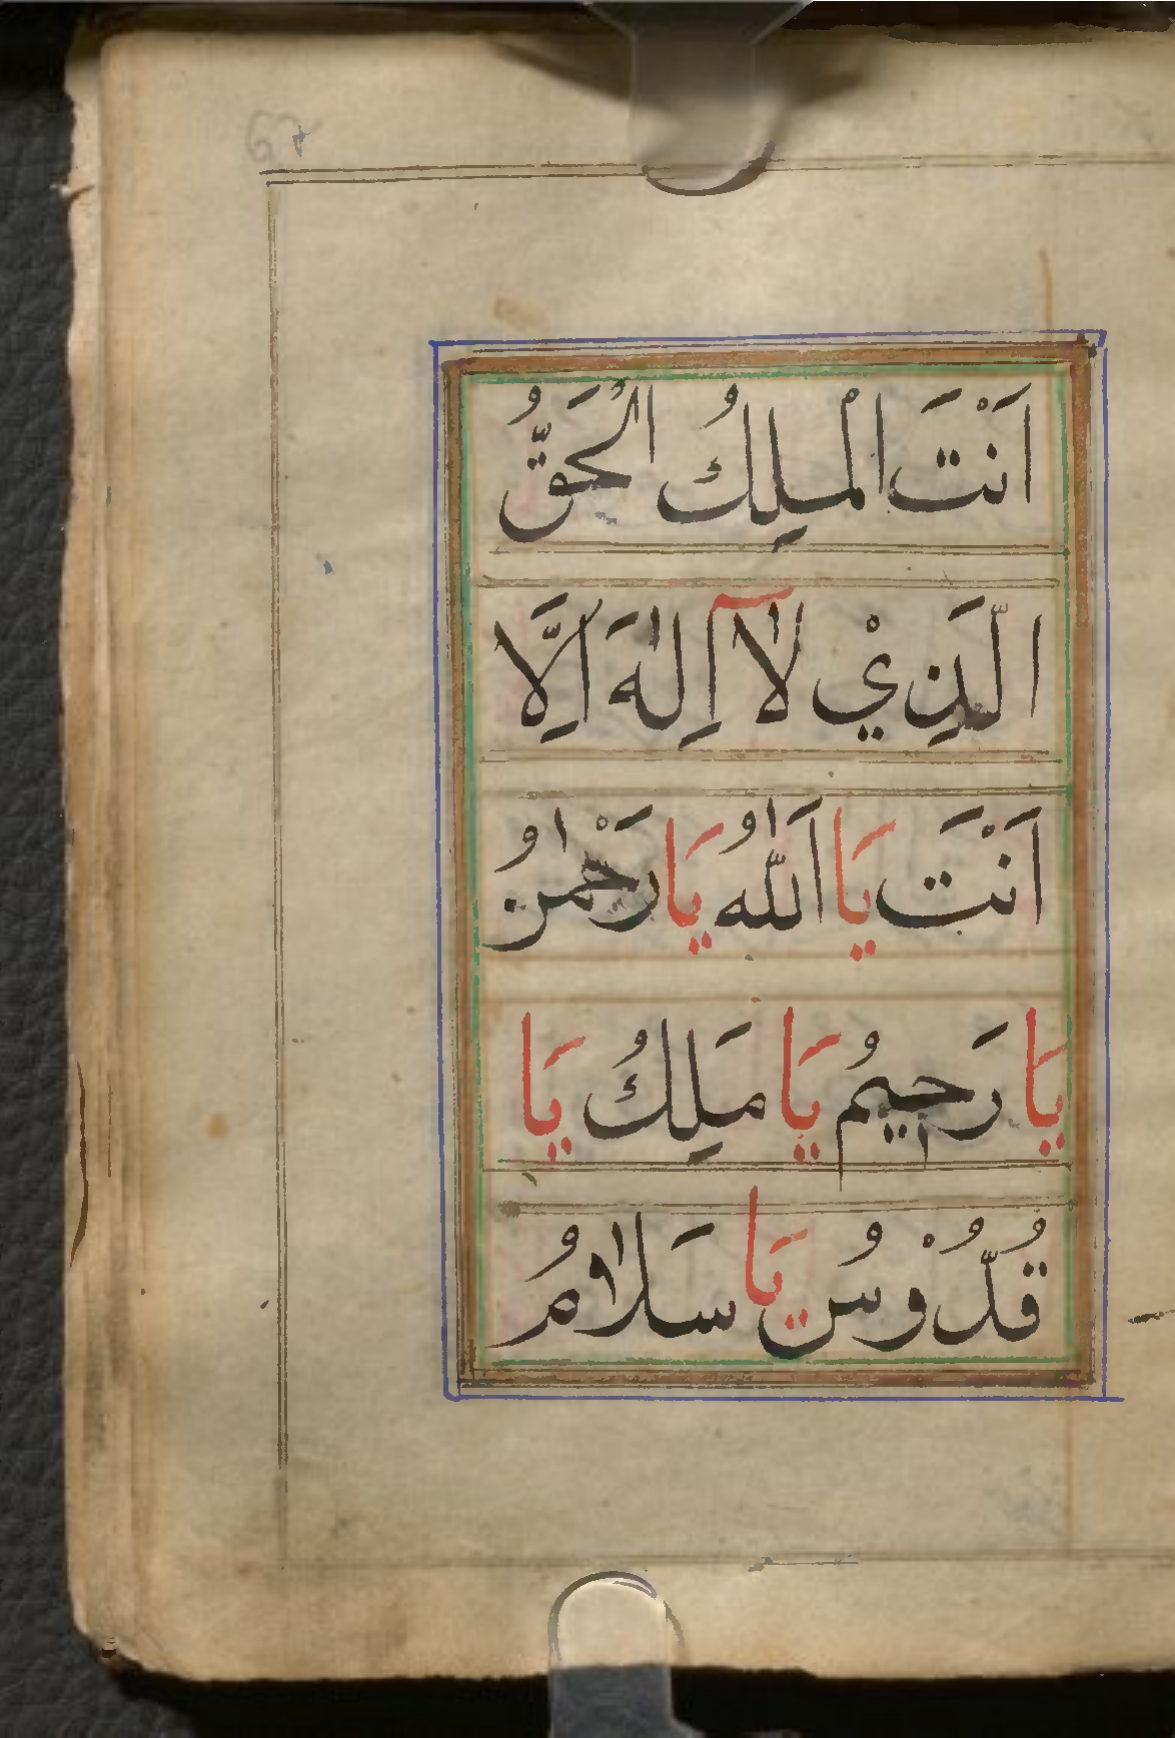 اَنْتَ الْمَلِكُ الْحَقُّ
الَّذِيْ لَآ اِلٰهَ اِلَّا
اَنْتَ يَا اَللّٰهُ يَا رَحْمٰنُ
يَا رَحِيمُ يَا مَلِكُ يَا
قُدُّوْسُ يَا سَلَامُ